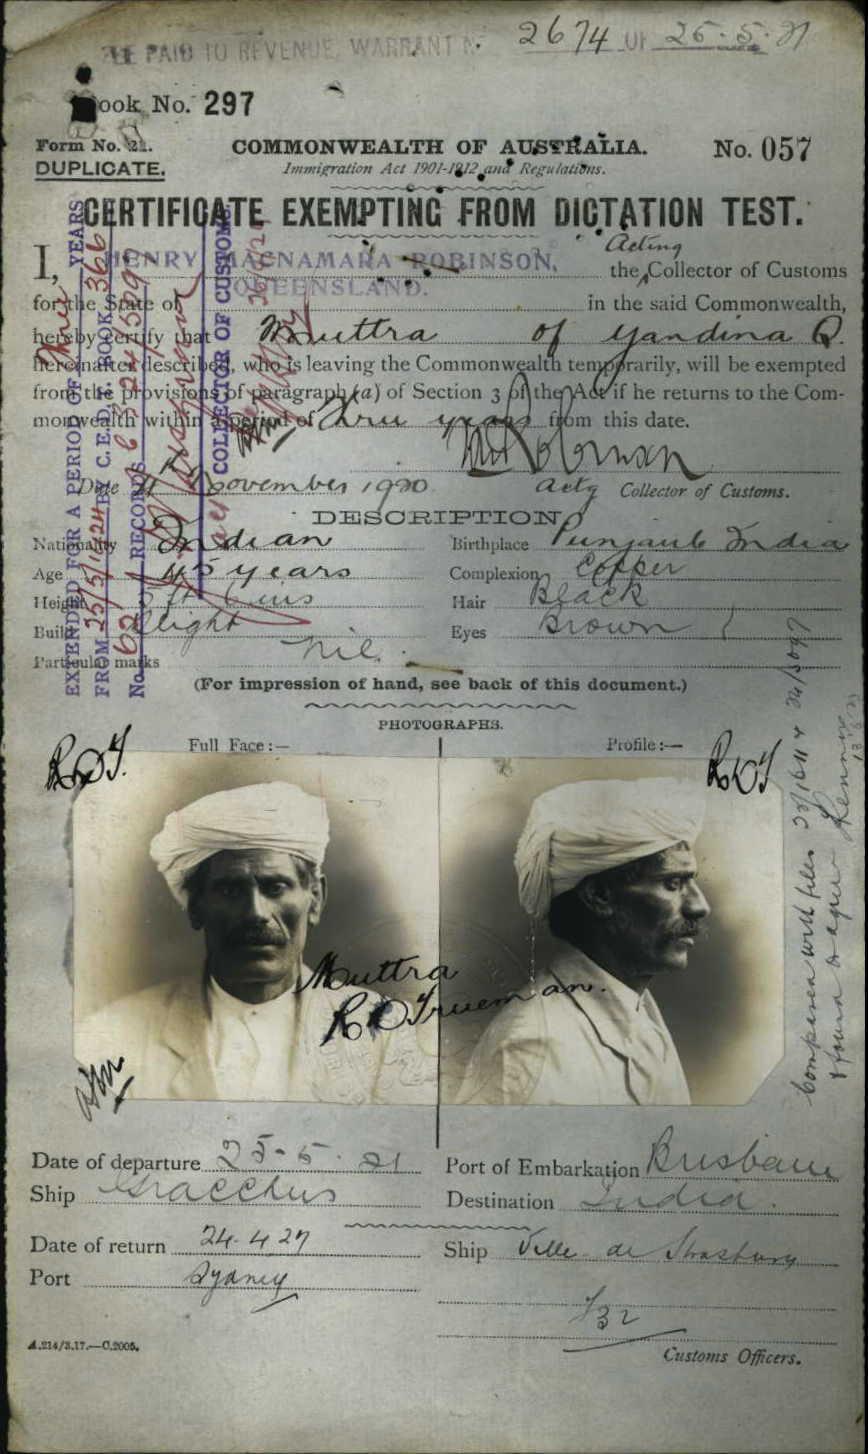 FEE PAID TO REVENUE, WARRANT No. 2674 OF 25.5.21
Book No. 297
Form No. 21.
DUPLICATE.
COMMONWEALTH OF AUSTRALIA.
No. 057
Immigration Act 1901-1912 and Regulations.
CERTIFICATE EXEMPTING FROM DICTATION TEST.
I, HENRY MACNAMARA ROBINSON, the Acting Collector of Customs
for the State of QUEENSLAND. in the said Commonwealth,
hereby certify that Muttra of Yandina Q.
hereinafter described, who is leaving the Commonwealth temporarily, will be exempted
from the provisions of paragraph (a) of Section 3 of the Act if he returns to the Com-
monwealth within a period of three years from this date.
Date November 1920
Actg Collector of Customs.
DESCRIPTION.
Nationality Indian
Birthplace Punjaub India
Age 45 years
Complexion Copper
Height 5 ft 6 ins
Hair Black
Build Slight
Eyes Brown
Particular marks nil.
(For impression of hand, see back of this document.)
PHOTOGRAPHS.
Full Face :—
Profile :—
EXTENDED FOR A PERIOD OF three YEARS
FROM 25/5/1924 BY C.E.D.T. BOOK 366
No. 62 RECORDS 24/5097
COLLECTOR OF CUSTOMS
Compared with files
& found to agree
Muttra
R D Trueman.
Date of departure 25-5-21
Port of Embarkation Brisbane
Ship Gracchus
Destination India.
Date of return 24.4.27
Ship Ville de Strasburg
Port Sydney
Customs Officers.
A.214/3.17.—C.2005.